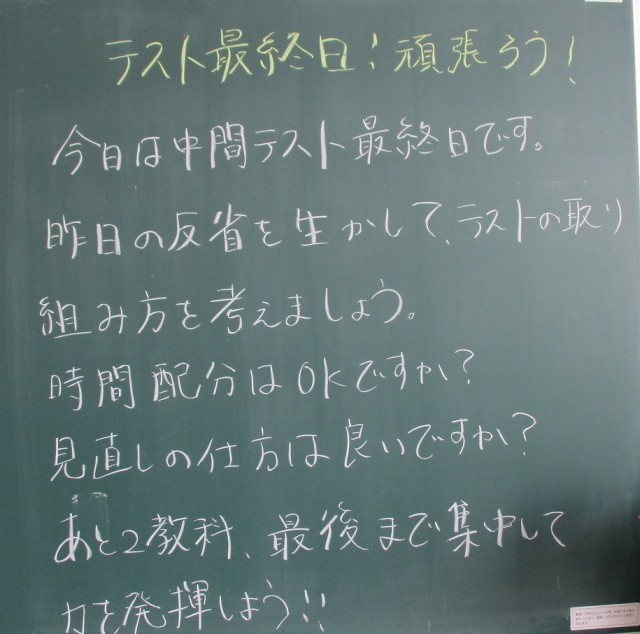 テスト最終日!頑張ろう!
今日は中間テスト最終日です。
昨日の反省を生かして、テストの取り
組み方を考えましょう。
時間配分はOKですか?
見直しの仕方は良いですか?
あと2教科、最後まで集中して
力を発揮しよう!!